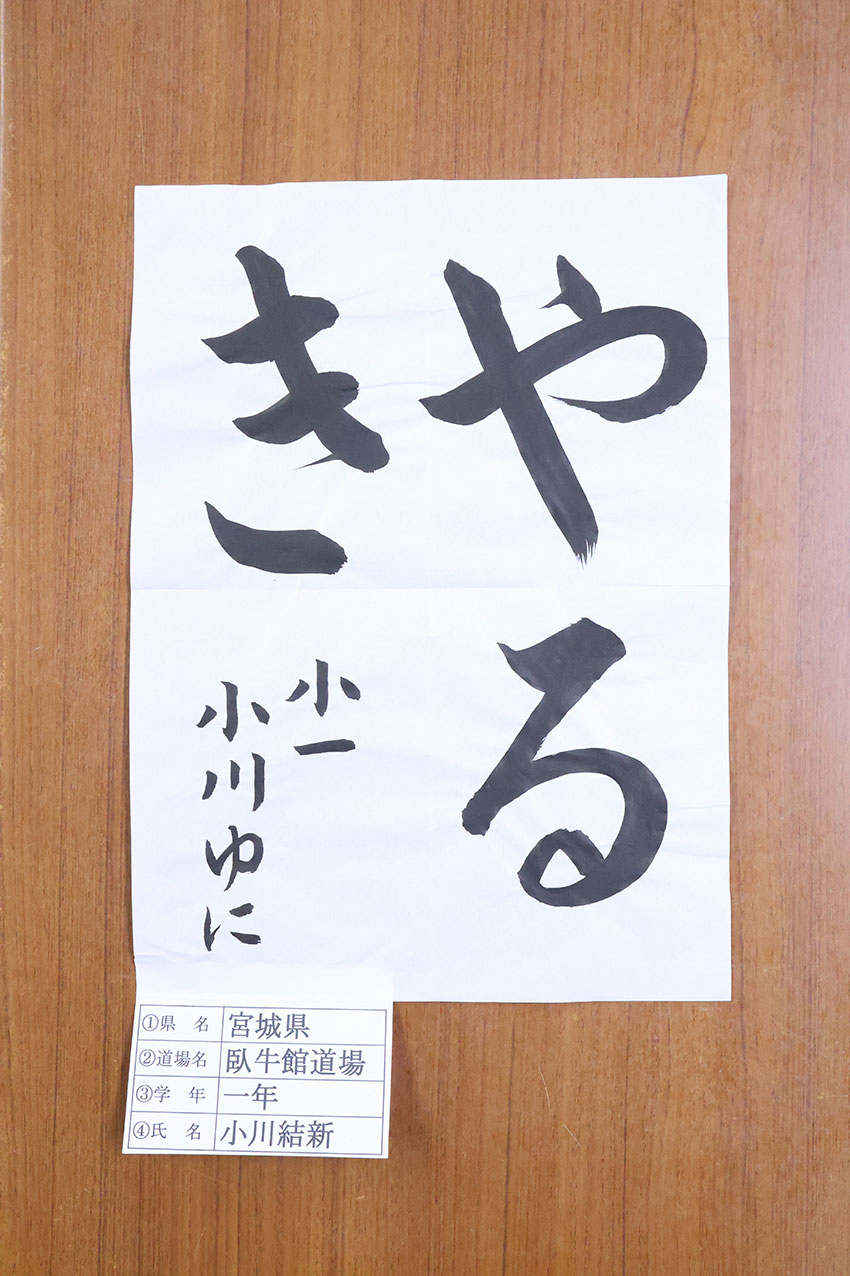 やる
き
小一
小川ゆに
①県 名 宮城県
②道場名 臥牛館道場
③学 年 一年
④氏 名 小川結新